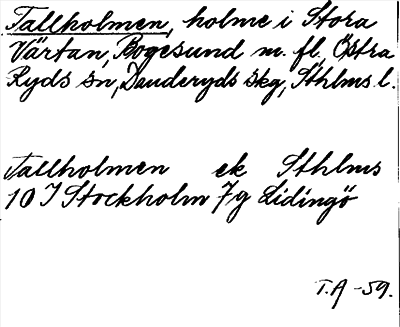 Tallholmen, holme i Stora
Värtan, Bogesund m. fl, Östra
Ryds sn, Danderyds skg, Sthlms l.
Tallholmen ek Sthlms
10 I Stockholm 7g Lidingö
T.A -59.